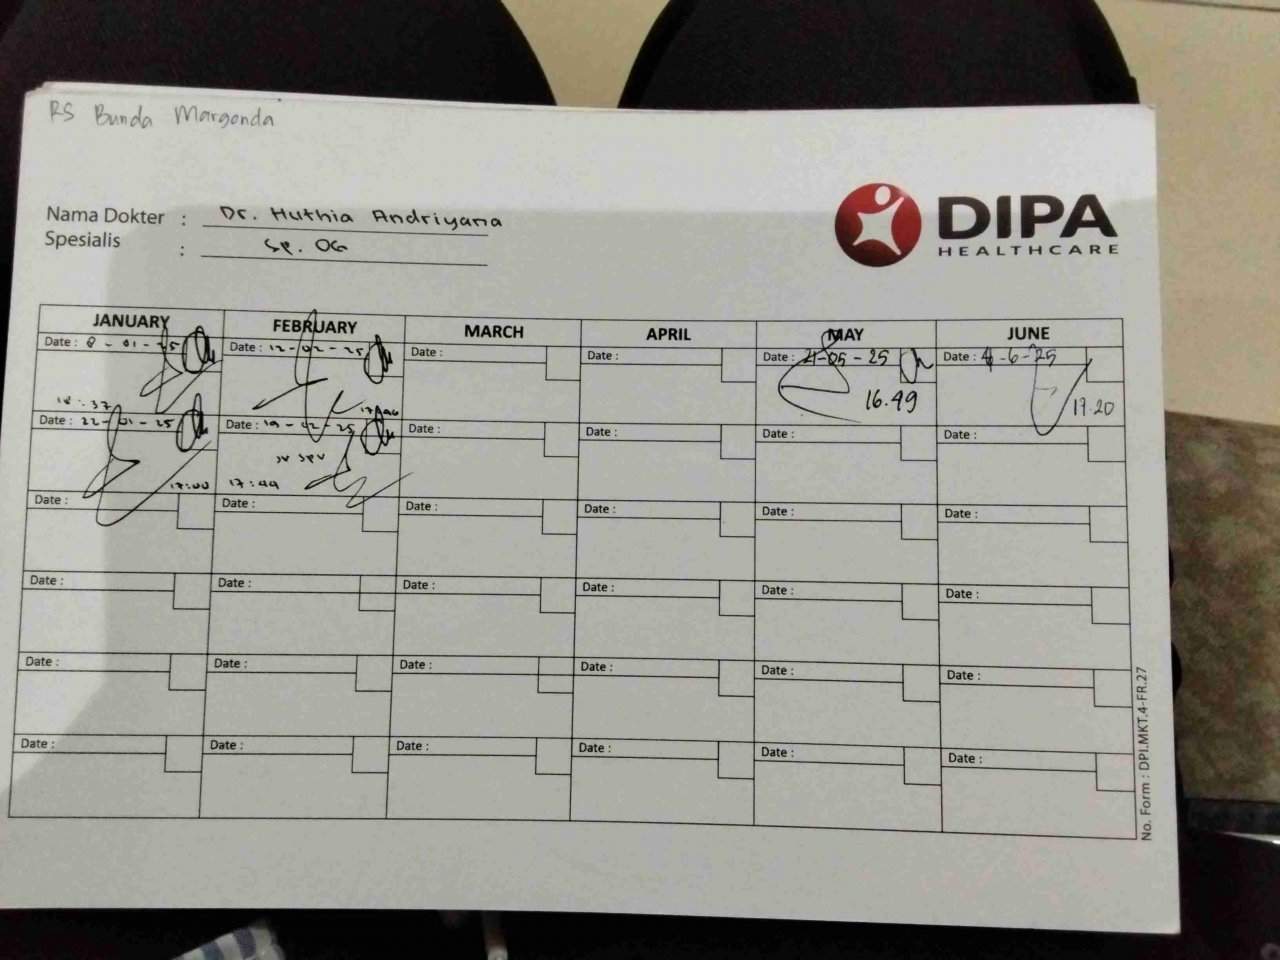 RS Bunda Margonda
Nama Dokter : Dr. Huthia Andriyana
Spesialis : Sp. OG
DIPA
HEALTHCARE
JANUARY FEBRUARY MARCH APRIL MAY JUNE
Date : 8-01-25 Date : 12-02-25 Date : Date : Date : 21-05-25 Date : 4-6-25
18:37 16.49 17.20
Date : 22-01-25 Date : 19-02-25 Date : Date : Date : Date :
17:00 17:44
Date : Date : Date : Date : Date : Date :
Date : Date : Date : Date : Date : Date :
Date : Date : Date : Date : Date : Date :
Date : Date : Date : Date : Date : Date :
No. Form : DPI.MKT.4-FR.27